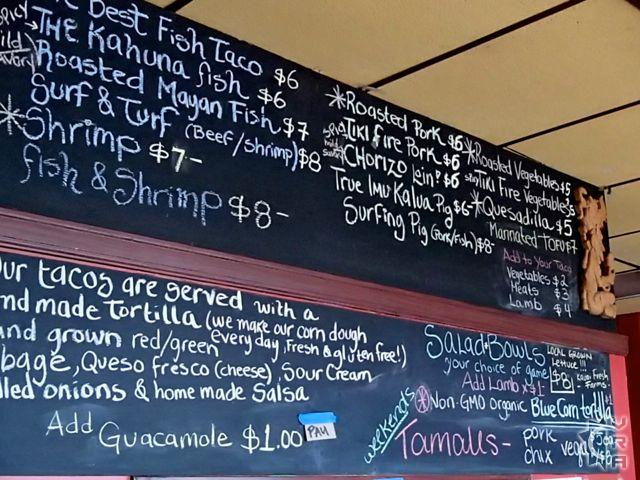 SPICY
Best Fish Taco $6
THE Kahuna fish $6
Roasted Mayan Fish $7
Surf & Turf (Beef/Shrimp) $8
*Shrimp $7-
fish & Shrimp $8-
*Roasted Pork $6
TIKI Fire Pork $6
CHORIZO
True Imu Kalua Pig $6-
Surfing Pig (Pork/Fish) $8-
*Roasted Vegetables $5
TIKI Fire Vegetables
*Quesadilla $5
Marinated TOFU $7
Add to your Taco
Vegetables $2
Meats $3
Lamb $4
ur tacos are served with a
nd made Tortilla (we make our corn dough
every day, Fresh & gluten free!)
and grown red/green
bage, Queso fresco (cheese), Sour Cream
led onions & home made Salsa
Add Guacamole $1.00
PAU
Salad Bowls
your choice of game
Add Lamb $1
LOCAL GROWN
$8
Fresh
Farms
Non-GMO Organic Blue Corn tortilla
weekends
Tamales-
pork
chix